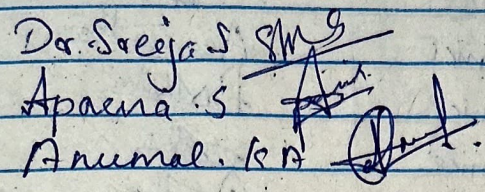 Dr. Sreeja S
Aparna . S
Anumal . K A